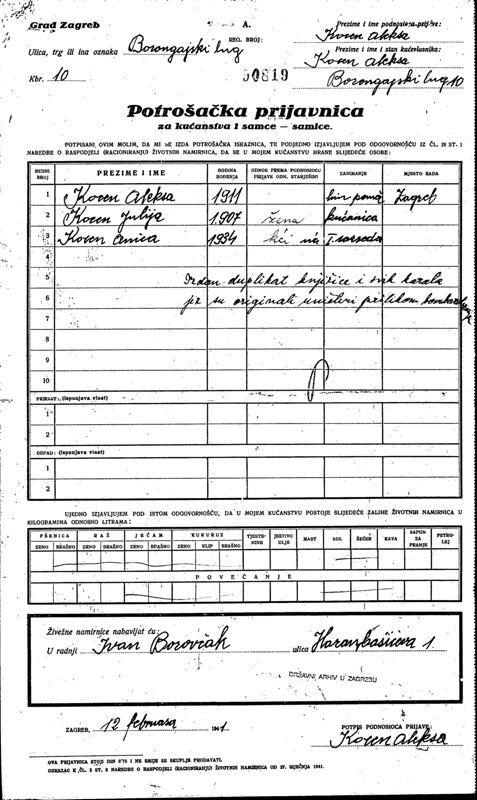 Grad Zagreb
A.
Prezime i ime podnosioca prijave:
Koren Aleksa
Ulica, trg ili ina oznaka Borongajski lug
REG. BROJ:
50819
Prezime i ime i stan kućevlasnika:
Koren Aleksa
Kbr. 10
Borongajski lug 10
Potrošačka prijavnica
za kućanstva i samce — samice.
POTPISANI OVIM MOLIM, DA MI SE IZDA POTROŠAČKA ISKAZNICA, TE PODJEDNO IZJAVLJUJEM POD ODGOVORNOŠĆU IZ ČL. 18 ST. 1
NAREDBE O RASPODJELI (RACIONIRANJU) ŽIVOTNIH NAMIRNICA, DA SE U MOJEM KUĆANSTVU HRANE SLIJEDEĆE OSOBE:
REDNI BROJ PREZIME I IME GODINA ROĐENJA ODNOS PREMA PODNOSIOCU PRIJAVE ODN. STARJEŠINI ZANIMANJE MJESTO RADA
1 Koren Aleksa 1911 Zagreb
2 Koren Julija 1907 žena kućanica
3 Koren Anica 1934 kći
4
5 Izdan duplikat knjižice i svih karata
6 jer su originali uništeni prilikom
7
8
9
10
PRIRAST: (ispunjava vlast)
1
2
OTPAD: (ispunjava vlast)
1
2
UJEDNO IZJAVLJUJEM POD ISTOM ODGOVORNOŠĆU, DA U MOJEM KUĆANSTVU POSTOJE SLIJEDEĆE ZALIHE ŽIVOTNIH NAMIRNICA U
KILOGRAMIMA ODNOSNO LITRAMA:
PŠENICA RAŽ JEČAM KUKURUZ TJESTENINE JESTIVO ULJE MAST SOL ŠEĆER KAVA SAPUN ZA PRANJE PETROLEJ
ZRNO BRAŠNO ZRNO BRAŠNO ZRNO BRAŠNO ZRNO KLIP BRAŠNO
POVEĆANJE
Živežne namirnice nabavljat ću:
U radnji Ivan Borovčak ulica Harambašićeva 1
DRŽAVNI ARHIV U ZAGREBU
ZAGREB, 12 februara 1941
POTPIS PODNOSIOCA PRIJAVE:
Koren Aleksa
OVA PRIJAVNICA STOJI DIN 0'75 I NE SMIJE SE SKUPLJE PRODAVATI.
OBRAZAC K ČL. 3 ST. 2 NAREDBE O RASPODJELI (RACIONIRANJU) ŽIVOTNIH NAMIRNICA OD 27. SIJEČNJA 1941.